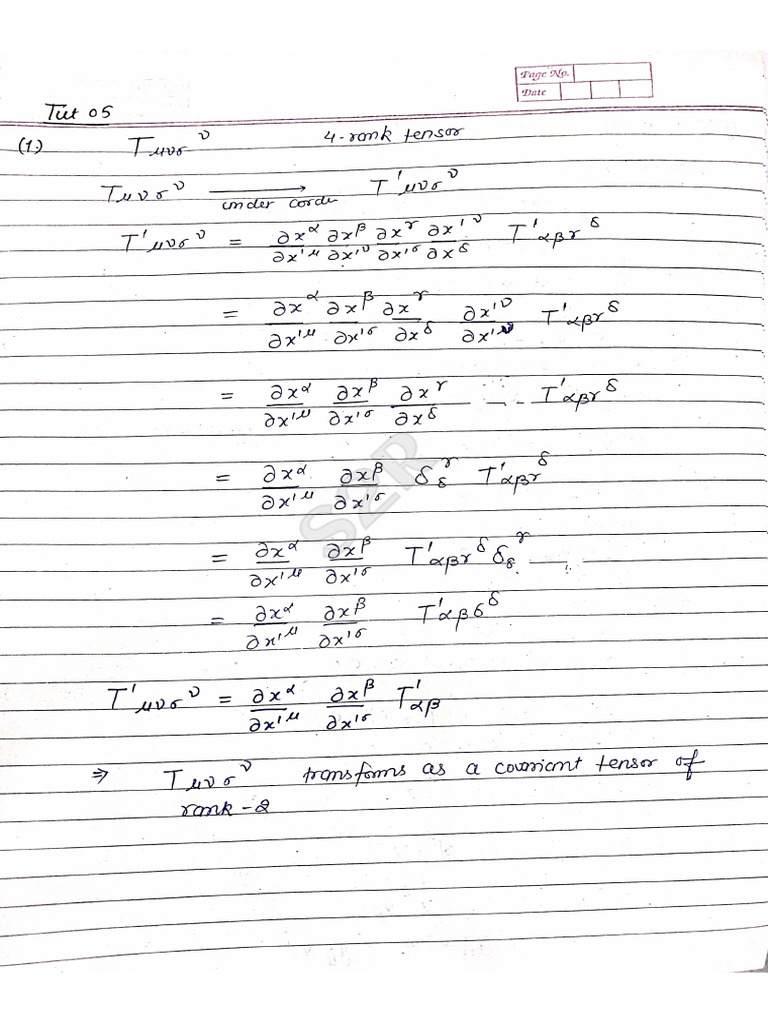 Page No.
Date
Tut 05
(1.) T_{μνσ}^ν 4-rank tensor
T_{μνσ}^ν ⟶ under corde T'_{μνσ}^ν
T'_{μνσ}^ν = ∂x^α/∂x'^μ ∂x^β/∂x'^ν ∂x^γ/∂x'^σ ∂x'^ν/∂x^δ T'_{αβγ}^δ
= ∂x^α/∂x'^μ ∂x^β/∂x'^σ ∂x^γ/∂x^δ ∂x'^ν/∂x'^ν T'_{αβγ}^δ
= ∂x^α/∂x'^μ ∂x^β/∂x'^σ ∂x^γ/∂x^δ ... T'_{αβγ}^δ
= ∂x^α/∂x'^μ ∂x^β/∂x'^σ δ_δ^γ T'_{αβγ}^δ
= ∂x^α/∂x'^μ ∂x^β/∂x'^σ T'_{αβγ}^δ δ_δ^γ ...
= ∂x^α/∂x'^μ ∂x^β/∂x'^σ T'_{αβδ}^δ
T'_{μνσ}^ν = ∂x^α/∂x'^μ ∂x^β/∂x'^σ T'_{αβ}
⇒ T_{μνσ}^ν transforms as a covarient tensor of
rank-2
S2R